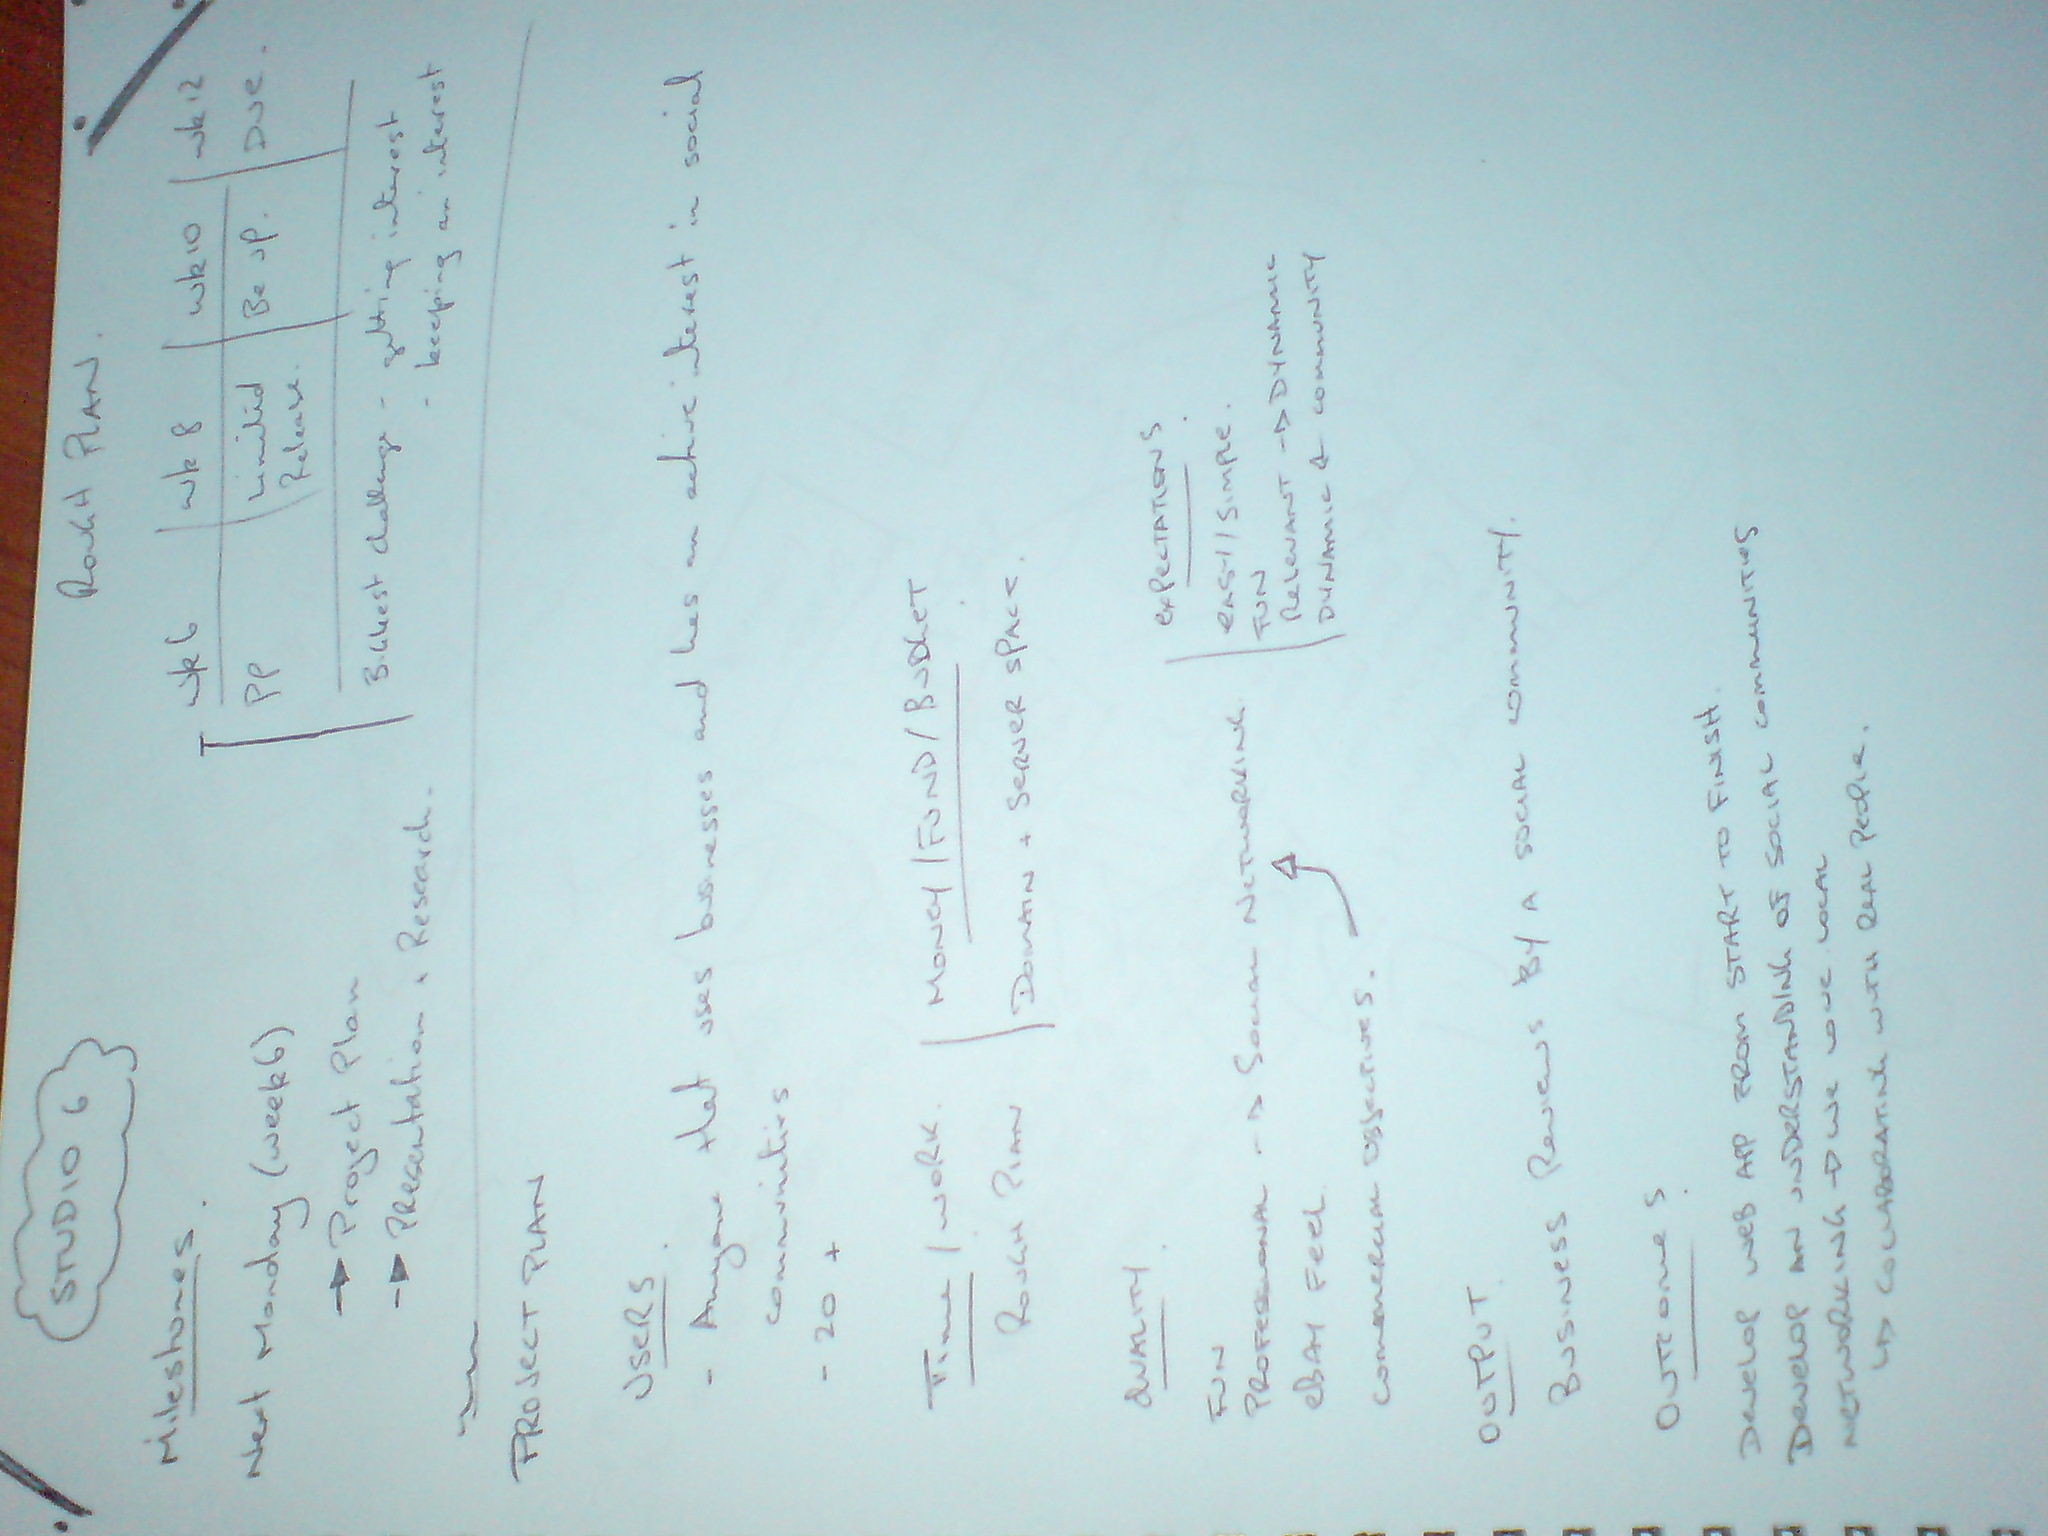 STUDIO 6
Milestones.
Next Monday (week 6)
→ Project Plan
→ Presentation + Research.
ROUGH PLAN.
wk 6 | wk 8 | wk 10 | wk 12
PP | Limited Release. | Be up. | Due.
Biggest challenge - getting interest
- keeping an interest
PROJECT PLAN
USERS.
- Anyone that uses businesses and has an active interest in social
communities
- 20 +
Time / WORK.
ROUGH PLAN
MONEY / FUND / BUDGET
DOMAIN + SERVER SPACE.
QUALITY.
FUN
PROFESSIONAL → SOCIAL NETWORKING.
EBAY FEEL.
COMMERCIAL OBJECTIVES.
EXPECTATIONS.
EASY / SIMPLE.
FUN
RELEVANT → DYNAMIC
DYNAMIC & COMMUNITY
OUTPUT.
BUSINESS REVIEWS BY A SOCIAL COMMUNITY.
OUTCOMES.
DEVELOP WEB APP FROM START TO FINISH.
DEVELOP AN UNDERSTANDING OF SOCIAL COMMUNITIES
NETWORKING → WE LOVE LOCAL
↳ COLLABORATING WITH REAL PEOPLE.